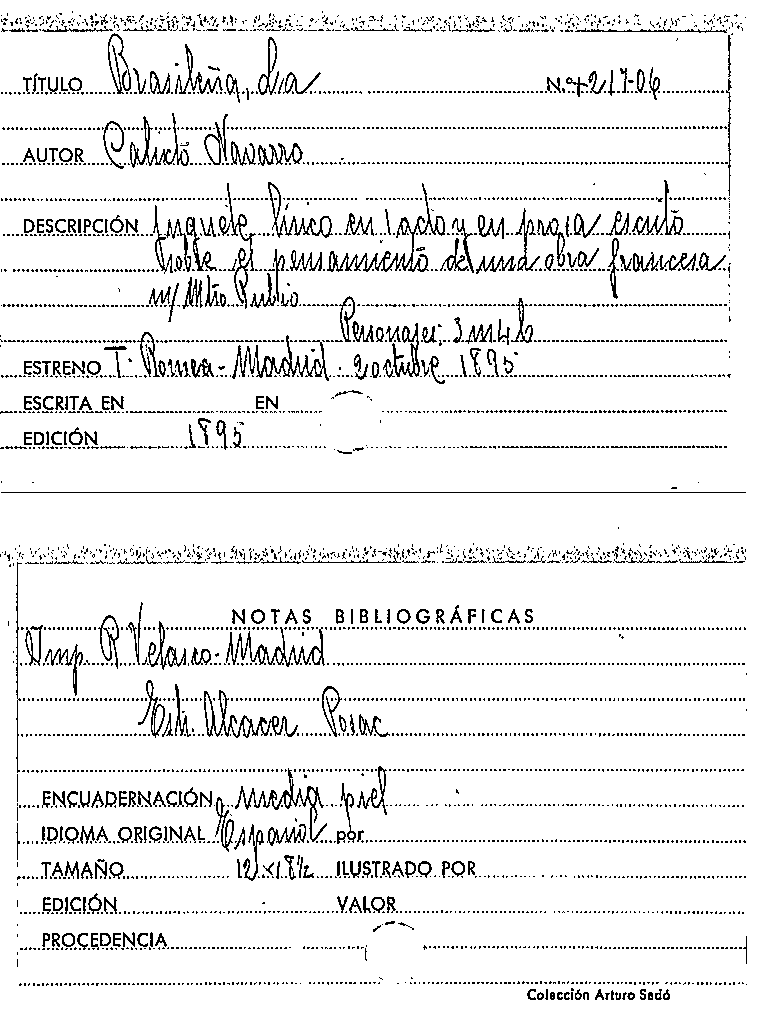 TÍTULO Brasileña, La N.º 4217-06
AUTOR Calixto Navarro
DESCRIPCIÓN Juguete lírico en 1 acto y en prosa escrito
sobre el pensamiento de una obra francesa
m/ Mtro Rubio
Personajes: 3 m 4 h
ESTRENO T. Romea - Madrid - 2 octubre 1895
ESCRITA EN EN
EDICIÓN 1895
NOTAS BIBLIOGRÁFICAS
Imp. R. Velasco - Madrid
Estr. Alcacer Posac
ENCUADERNACIÓN media piel
IDIOMA ORIGINAL Español por
TAMAÑO 12 x 18½ ILUSTRADO POR
EDICIÓN VALOR
PROCEDENCIA
Colección Arturo Sedó